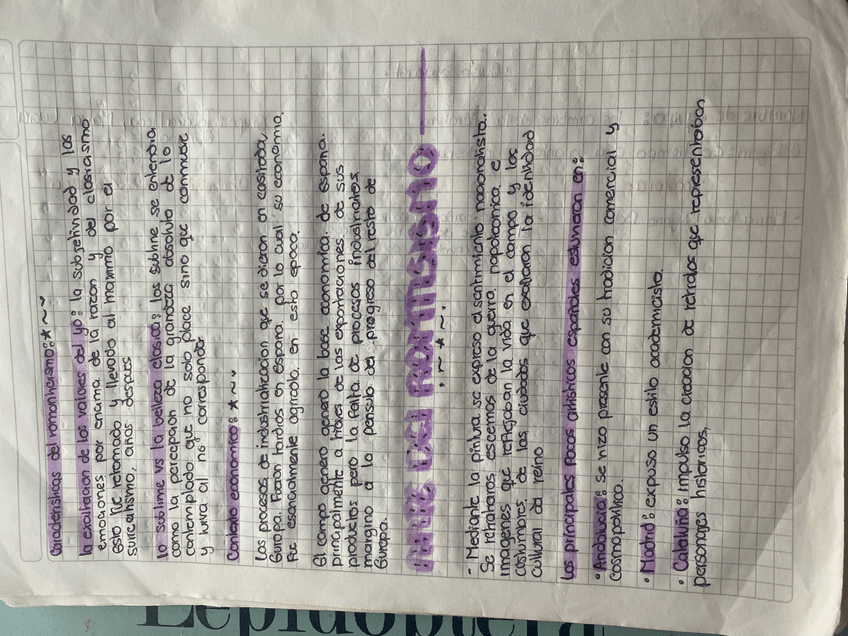 Caracteristicas del romanticismo:*~~
la exaltacion de los valores del yo: la subjetividad y las
emociones por encima de la razon y del clasicismo
esto fue retomado y llevado al maximo por el
surrealismo, años despues
lo sublime vs la belleza clasica: los sublime se entendia
como la percepcion de la grandeza absoluta de lo
contemplado que no solo place sino que conmueve
y lleva al no corresponder
Contexto economico: *~~
Los procesos de industrializacion que se dieron en casi toda
Europa. Fueron tardios en España, por lo cual su economia.
Fue esencialmente agricola en esta epoca.
El campo genero genero la base economica. de españa.
principalmente a traves de las exportaciones de sus
productos pero la falta de procesos industriales
margino a la pensula del progreso del resto de
Europa.
ARTE DEL ROMTISISMO
·~*~·
- Mediante la pintura se expreso el sentimiento nacionalista.
Se retrataron escenas de la guerra, napoleonica, e
imagenes que reflejaban la vida en el campo y las
costumbres de las ciudades que exaltaron la identidad
cultural del reino
Los principales focos artisticos españoles estuvieron en:
• Andalucia: se hizo presente con su tradicion comercial y
Cosmopolitico.
• Madrid: expuso un estilo academicista
• Cataluña: impulso la creacion de retratos que representaban
personajes historicos.
Lepidoptera